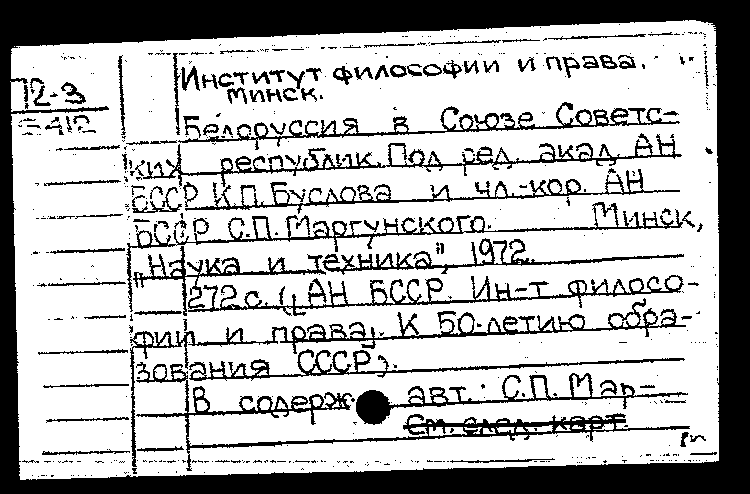 72-3
5412
Институт философии и права.
Минск.
Белоруссия в Союзе Советс-
ких республик. Под ред. акад. АН
БССР К.П. Буслова и чл.-кор. АН
БССР С.П. Маргунского. Минск,
„Наука и техника", 1972.
272 с. ([АН БССР. Ин-т филосо-
фии и права]. К 50-летию обра-
зования СССР).
В содерж. авт.: С.П. Мар-
См. след. карт